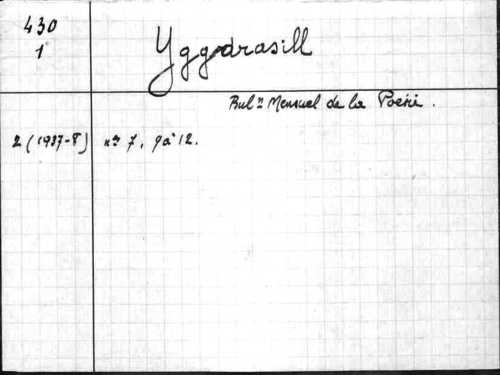 430
1
Yggdrasill
Bulⁿ Mensuel de la Poésie.
2 (1937-8) nos 7, 9 à 12.